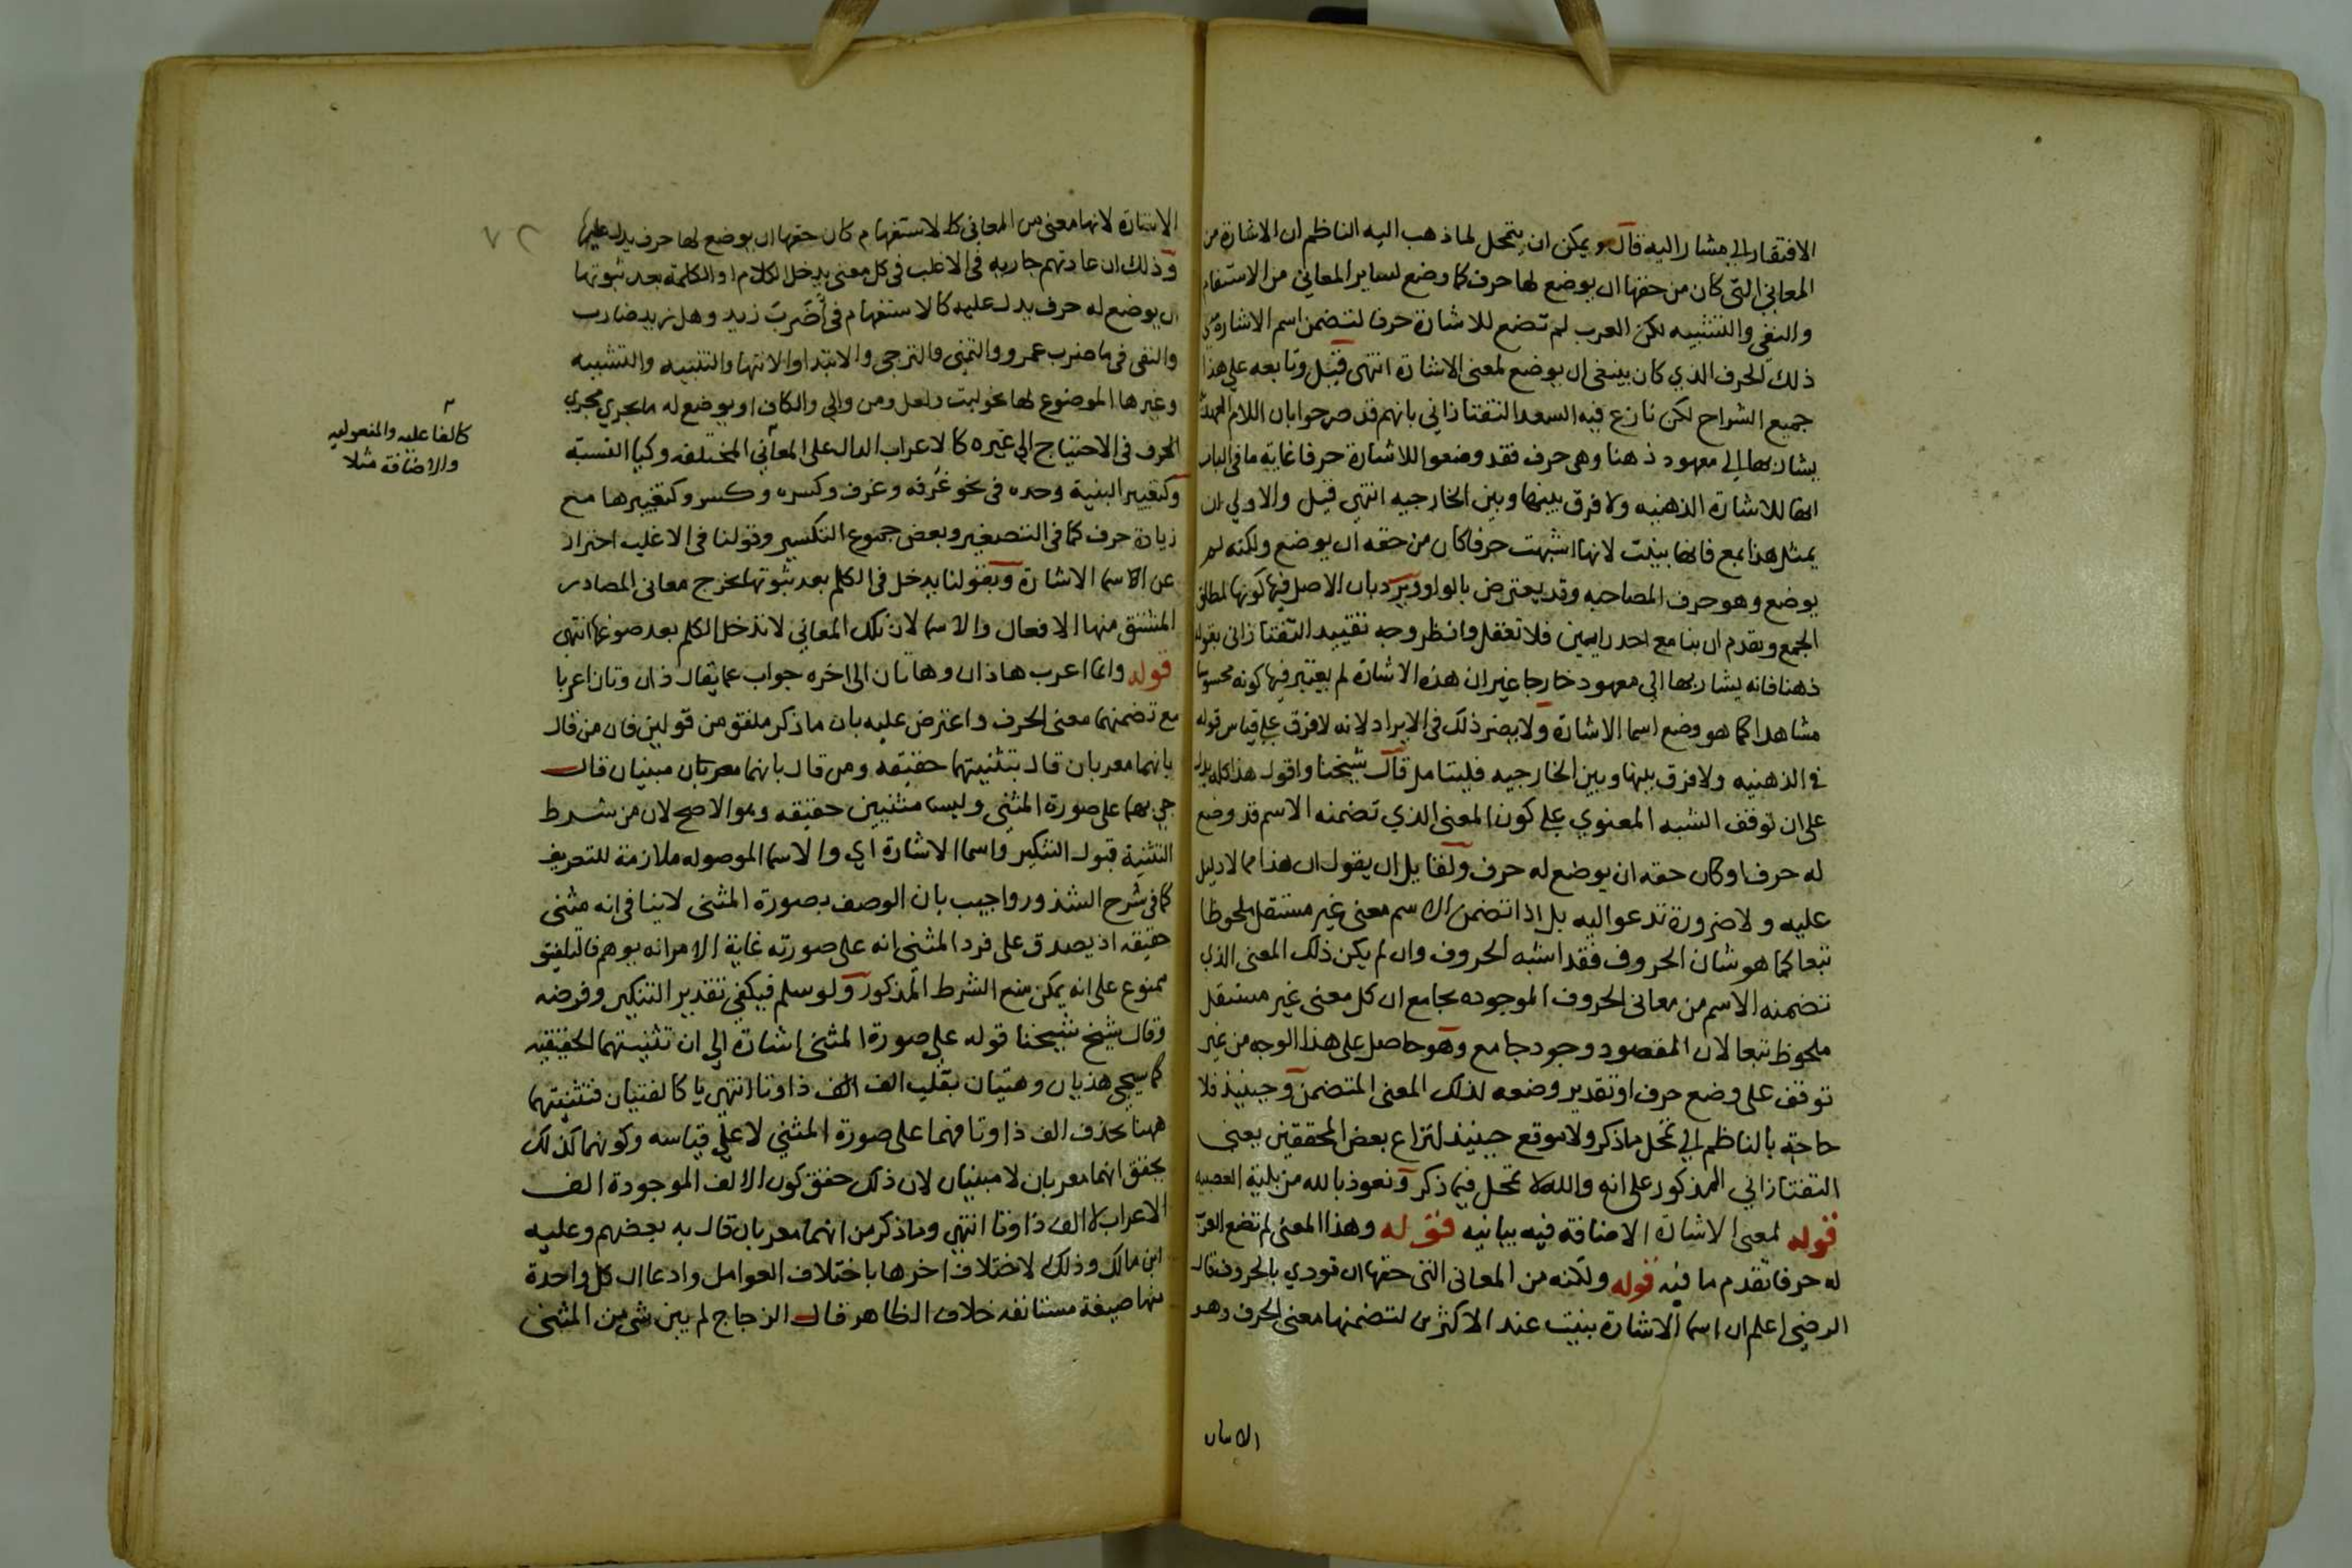 الافتقار الى مشار اليه قال ويمكن ان يتمحل لما ذهب اليه الناظم ان الاشارة من
المعاني التى كان من حقها ان يوضع لها حرف كما وضع لساير المعاني من الاستفهام
والنفى والتشبيه لكن العرب لم تضع للاشارة حرفا لتضمن اسم الاشارة معنى
ذلك الحرف الذي كان ينبغى ان يوضع لمعنى الاشارة انتهى قيل وتابعه على هذا
جميع الشراح لكن نازع فيه السعد التفتازاني بانهم قد صرحوا بان اللام العهدية
يشار بها الى معهود ذهنا وهى حرف فقد وضعوا للاشارة حرفا غاية ما فى الباب
انها للاشارة الذهنيه ولا فرق بينها وبين الخارجيه انتهى قيل والاولي ان
يمثل هذا بمع فانها بنيت لانها اشبهت حرفا كان من حقه ان يوضع ولكنه لم
يوضع وهو حرف المصاحبه وقد يعترض بالواو ويرد بان الاصل فيها كونها لمطلق
الجمع وتقدم ان بنا مع احد رايين فلا تغفل وانظر وجه تقييد التفتازانى بقوله
ذهنا فانه يشار بها الى معهود خارجا غير ان هذه الاشارة لم يعتبر فيها كونه محسوسا
مشاهدا كما هو وضع اسما الاشارة ولا يضر ذلك فى الايراد لانه لا فرق على قياس قوله
فى الذهنيه ولا فرق بينها وبين الخارجيه فليتامل قال شيخنا واقول هذا كله يدل
على ان توقف الشبه المعنوي على كون المعنى الذي تضمنه الاسم قد وضع
له حرف او كان حقه ان يوضع له حرف ولقايل ان يقول ان هذا مما لا دليل
عليه ولا ضرورة تدعو اليه بل اذا تضمن الاسم معنى غير مستقل ملحوظا
تبعا كما هو شان الحروف فقد اشبه الحروف وان لم يكن ذلك المعنى الذي
تضمنه الاسم من معانى الحروف الموجوده بجامع ان كل معنى غير مستقل
ملحوظ تبعا لان المقصود وجود جامع وهو حاصل على هذا الوجه من غير
توقف على وضع حرف او تقدير وضعه لذلك المعنى المتضمن وحينيذ فلا
حاجة بالناظم الى تمحل ما ذكر ولا موقع حينيذ لنزاع بعض المحققين يعنى
التفتازاني المذكور على انه والله لا تمحل فيما ذكر ونعوذ بالله من بلية العصبيه
قوله لمعنى الاشارة الاضافة فيه بيانيه قوله وهذا المعنى لم تضع العرب
له حرفا تقدم ما فيه قوله ولكنه من المعانى التى حقها ان تودي بالحروف قال
الرضى اعلم ان اسما الاشارة بنيت عند الاكثرين لتضمنها معنى الحرف وهو
الاشارة
الاشارة لانها معنى من المعانى كالاستفهام كان حقها ان يوضع لها حرف يدل عليها
وذلك ان عادتهم جاريه فى الاغلب فى كل معنى يدخل الكلام او الكلمة بعد ثبوتها
ان يوضع له حرف يدل عليه كالاستفهام فى أضرب زيد وهل زيد ضارب
والنفى فى ما ضرب عمرو والتمنى والترجى والابتدا والانتها والتنبيه والتشبيه
وغيرها الموضوع لها نحو ليت ولعل ومن والى والكاف او يوضع له ما يجري مجري
الحرف فى الاحتياج الى غيره كالاعراب الدال على المعانى المختلفه وكيا النسبة
وكتغيير البنية وحده فى نحو غرفه وغرف وكسره وكسر وكتغييرها مع
زيادة حرف كما فى التصغير وبعض جموع التكسير وقولنا فى الاغلب احتراز
عن الاسما الاشارة وبقولنا يدخل فى الكلم بعد ثبوتها يخرج معانى المصادر
المشتق منها الافعال والاسما لان تلك المعاني لا تدخل الكلم بعد صوغها انتهى
قوله وانما اعرب هاذان وهاتان الى اخره جواب عما يقال ذان وتان اعربا
مع تضمنهما معنى الحرف واعترض عليه بان ما ذكر ملفق من قولين فان من قال
بانهما معربان قال بتثنيتهما حقيقه ومن قال بانهما معربتان مبنيان قال
جى بهما على صورة المثنى وليسا مثنيين حقيقه وهو الاصح لان من شرط
التثنية قبول التنكير واسما الاشارة اي والاسما الموصوله ملازمة للتعريف
كما فى شرح الشذور واجيب بان الوصف بصورة المثنى لا ينافى انه مثنى
حقيقه اذ يصدق على فرد المثنى انه على صورته غاية الامر انه يوهم فالتلفيق
ممنوع على انه يمكن منع الشرط المذكور ولو سلم فيكفى تقدير التنكير وفرضه
وقال شيخ شيخنا قوله على صورة المثنى اشارة الى ان تثنيتهما الحقيقيه
كما سيجى هذيان وهتيان بقلب الف الف ذا وتا انتهى يا كالفتيان فتثنيتهما
ههنا بحذف الف ذا وتا فهما على صورة المثنى لا على قياسه وكونهما كذلك
يحقق انهما معربان لا مبنيان لان ذلك حقق كون الالف الموجودة الف
الاعراب لا الف ذا وتا انتهى وما ذكر من انهما معربان قال به بعضهم وعليه
ابن مالك وذلك لاختلاف اخرها باختلاف العوامل وادعا ان كل واحدة
منها صيغة مستانفه خلاف الظاهر قال الزجاج لم يبن شى من المثنى
٧٢
كالفاعليه والمفعوليه
والاضافة مثلا